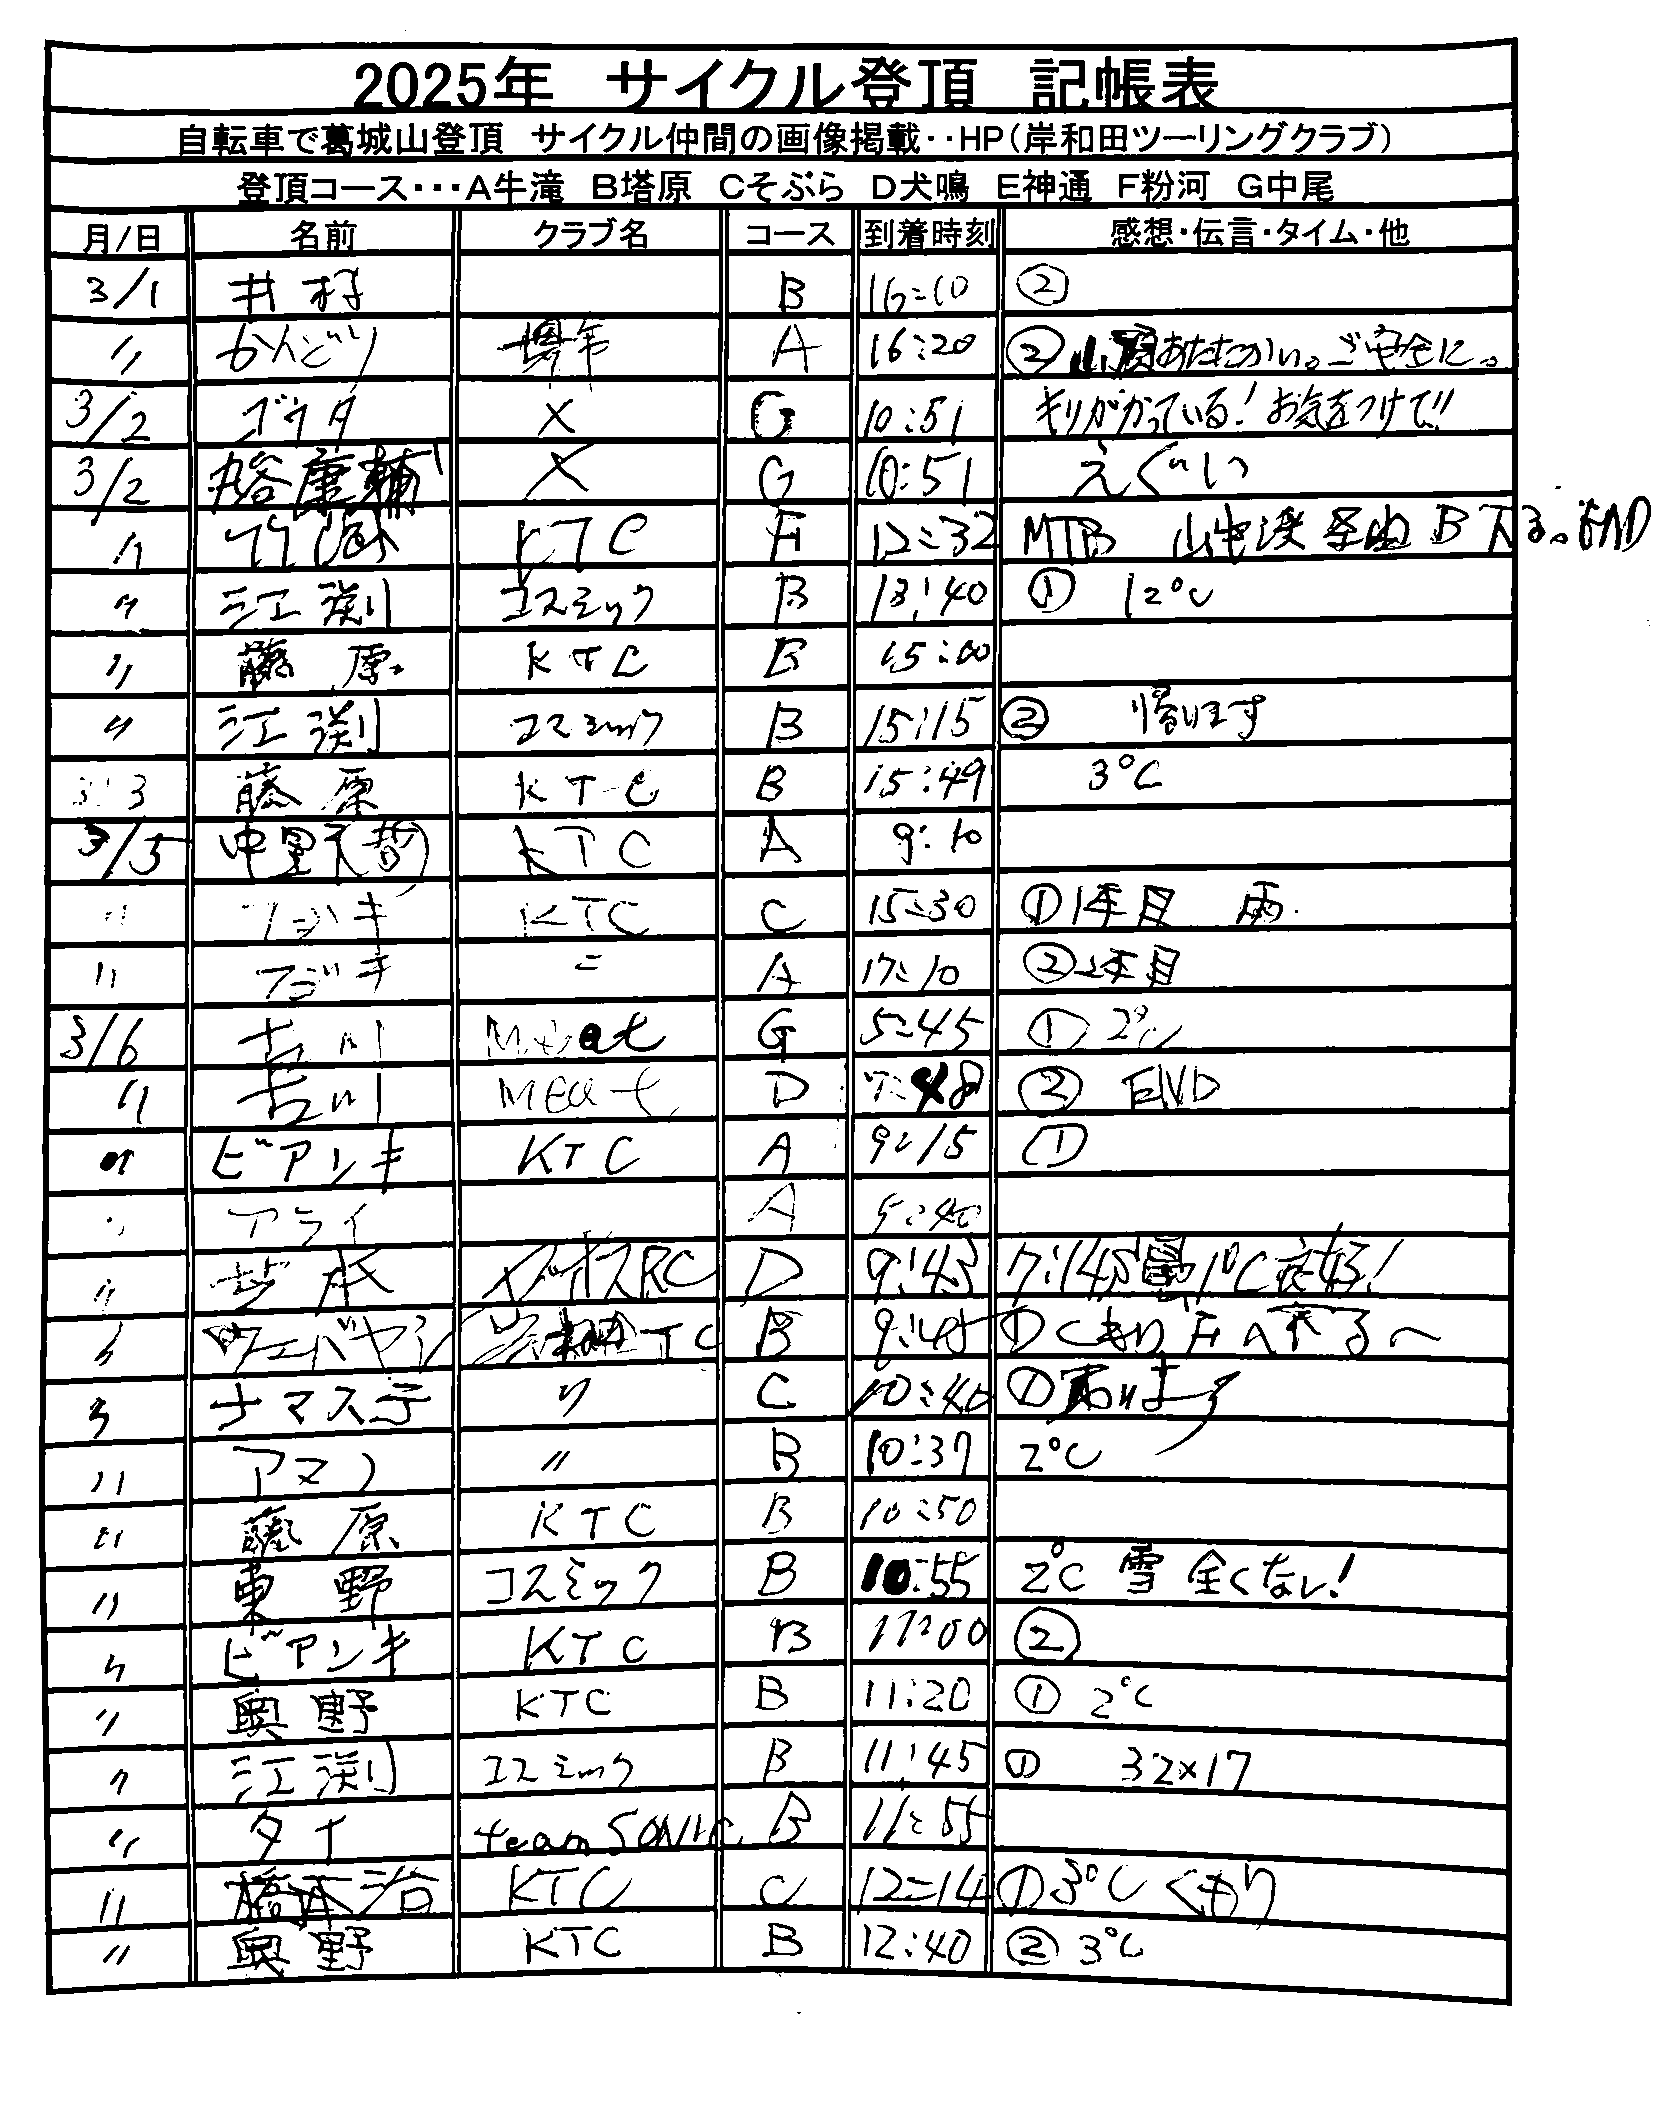 2025年 サイクル登頂 記帳表
自転車で葛城山登頂 サイクル仲間の画像掲載‥HP(岸和田ツーリングクラブ)
登頂コース･･･A牛滝 B塔原 Cそぶら D犬鳴 E神通 F粉河 G中尾
月/日 名前 クラブ名 コース 到着時刻 感想・伝言・タイム・他
3/1 井村 B 16:10 ②
〃 かんどり A 16:20 ② 山頂あたたかい。ご安全に。
3/2 ゴウダ X G 10:51 キリがかっている! お気をつけて!!
3/2 康輔 X G 10:51 えぐい
〃 KTC F 12:32 MTB 山中渓経由 B下る。END
〃 江渕 コスミック B 13:40 ① 12℃
〃 藤原 KTC B 15:00
〃 江渕 コスミック B 15:15 ② 帰ります
3/3 藤原 KTC B 15:49 3℃
3/5 中里 KTC A 9:10
〃 フジキ KTC C 15:30 ①1本目 雨
〃 フジキ 〃 A 17:10 ②2本目
3/6 古川 Meat G 5:45 ① 2℃
〃 古川 MEat D 7:48 ② END
〃 ビアンキ KTC A 9:15 ①
〃 アライ A 9:40
〃 RC D 9:43
〃 ヴェバヤシ 岸和田TC B 9:45 ①くもり Fへ下る〜
〃 ナマステ 〃 C 10:40 ①
〃 アマノ 〃 B 10:37 2℃
〃 藤原 KTC B 10:50
〃 東野 コスミック B 10:55 2℃ 雪 全くない!
〃 ビアンキ KTC B 11:00 ②
〃 奥野 KTC B 11:20 ① 2℃
〃 江渕 コスミック B 11:45 ① 32×17
〃 タナ team SONIC B 11:55
〃 橋本治 KTC C 12:14 ①3℃ くもり
〃 奥野 KTC B 12:40 ② 3℃